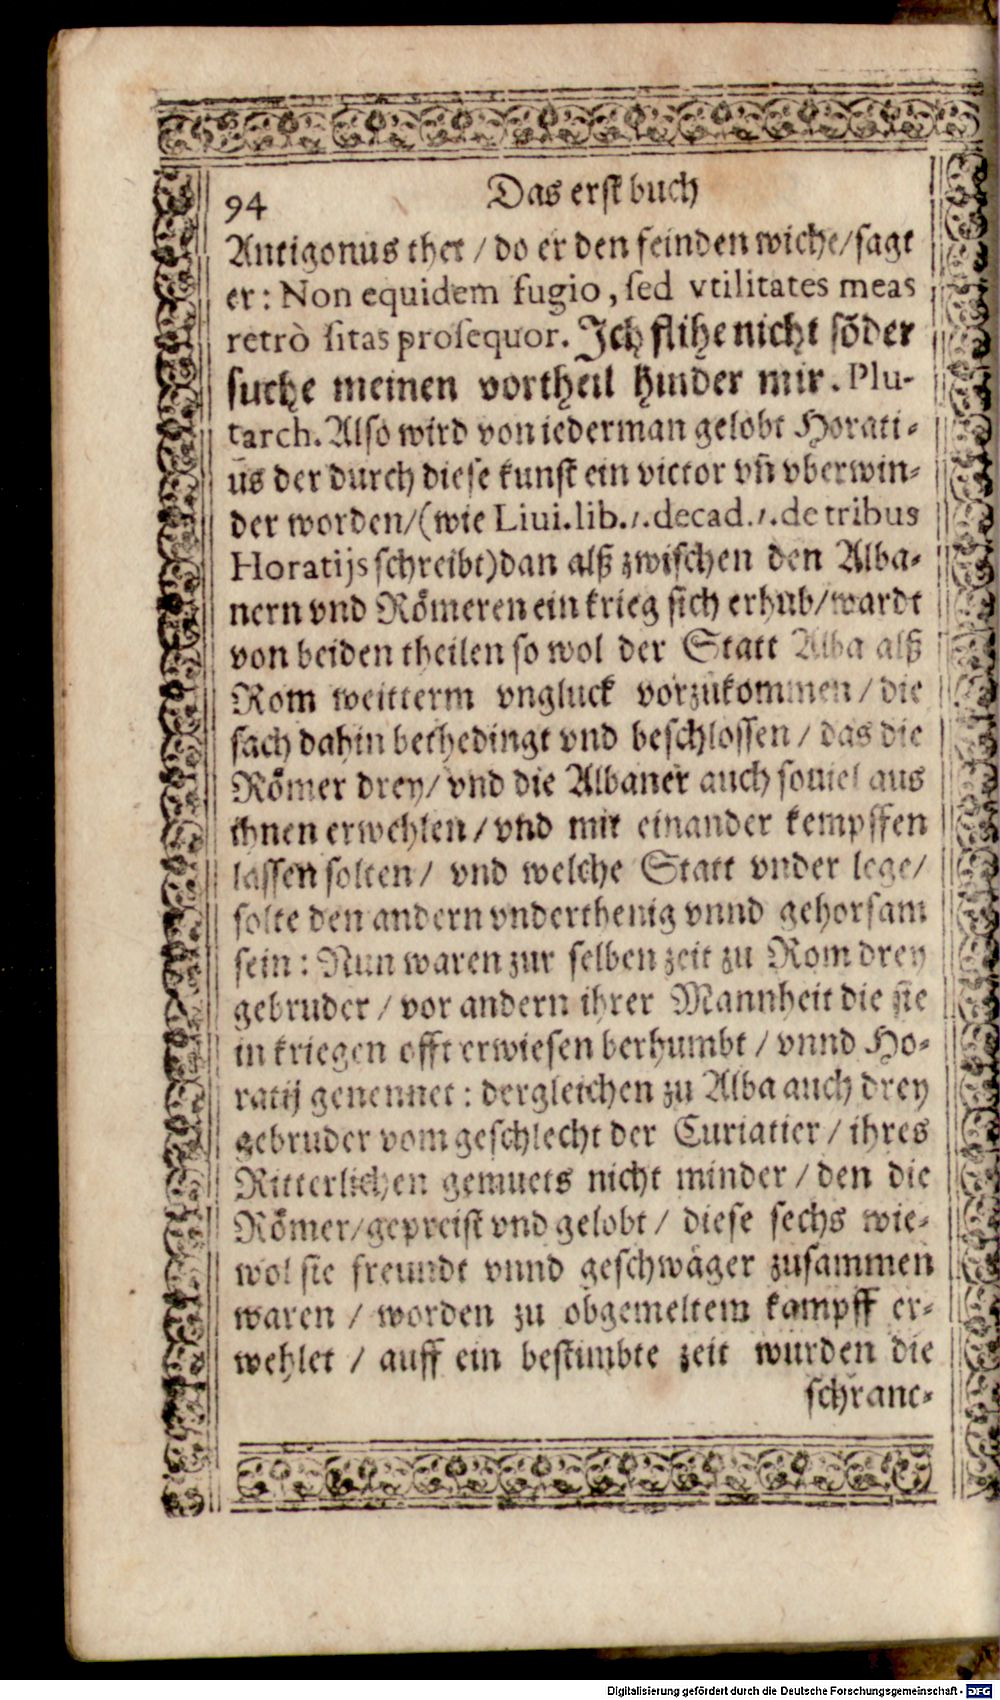 94 Das erst buch
Antigonus thet / do er den feinden wiche/sagt
er: Non equidem fugio, sed vtilitates meas
retrò sitas prosequor. Ich flihe nicht sõder
suche meinen vortheil hinder mir. Plu-
tarch. Also wird von iederman gelobt Horati-
us der durch diese kunst ein victor vñ vberwin-
der worden/(wie Liui.lib.1.decad.1.de tribus
Horatijs schreibt)dan alß zwischen den Alba-
nern vnd Römeren ein krieg sich erhub/wardt
von beiden theilen so wol der Statt Alba alß
Rom weitterm vngluck vorzukommen / die
sach dahin bethedingt vnd beschlossen / das die
Römer drey/ vnd die Albaner auch souiel aus
ihnen erwehlen / vnd mit einander kempffen
lassen solten / vnd welche Statt vnder lege/
solte den andern vnderthenig vnnd gehorsam
sein: Nun waren zur selben zeit zu Rom drey
gebruder / vor andern ihrer Mannheit die sie
in kriegen offt erwiesen berhumbt / vnnd Ho-
ratij genennet: dergleichen zu Alba auch drey
gebruder vom geschlecht der Curiatier / ihres
Ritterlichen gemuets nicht minder / den die
Römer/gepreist vnd gelobt / diese sechs wie-
wol sie freundt vnnd geschwäger zusammen
waren / worden zu obgemeltem kampff er-
wehlet / auff ein bestimbte zeit wurden die
schranc-
Digitalisierung gefördert durch die Deutsche Forschungsgemeinschaft - DFG